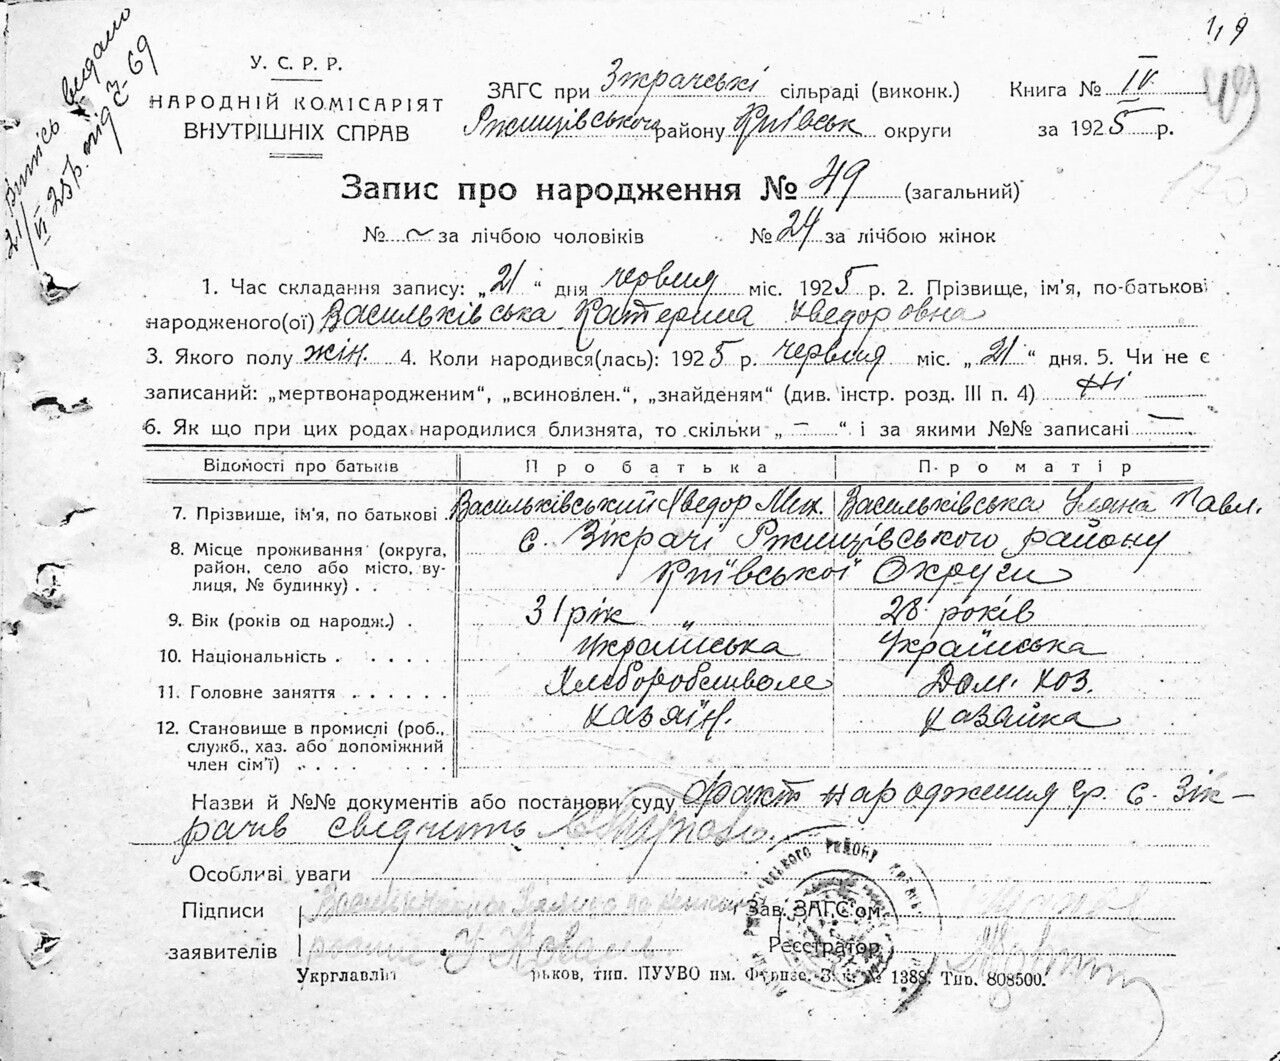 119
Випись видано
21/VI 25 р. під № 69
У. С. Р. Р.
НАРОДНІЙ КОМІСАРІЯТ
ВНУТРІШНІХ СПРАВ
ЗАГС при Зікрачські сільраді (виконк.) Книга № IV
Ржищівського району Київськ округи за 1925 р.
49
Запис про народження № 49 (загальний)
№ ~ за лічбою чоловіків № 24 за лічбою жінок
1. Час складання запису: „21“ дня червня міс. 1925 р. 2. Прізвище, ім’я, по-батькові
народженого(ої) Васильківська Катерина Хведоровна
3. Якого полу жін. 4. Коли народився(лась): 1925 р. червня міс. „21“ дня. 5. Чи не є
записаний: „мертвонародженим“, „всиновлен.“, „знайденям“ (див. інстр. розд. III п. 4) Ні
6. Як що при цих родах народилися близнята, то скільки „ – “ і за якими №№ записані —
Відомості про батьків Про батька Про матір
7. Прізвище, ім’я, по батькові Васильківський Хведор Мих. Васильківська Уляна Павл.
8. Місце проживання (округа, район, село або місто, вулиця, № будинку) . . с. Зікрачі Ржищівського району
Київської Округи
9. Вік (років од народж.) . 31 рік 28 років
10. Національність . . . . . . Українська Українська
11. Головне заняття . . . . . . Хлеборобством Дом. хоз.
12. Становище в промислі (роб., служб., хаз. або допоміжний член сім’ї) . . . . . . хазяїн. хазяйка
Назви й №№ документів або постанови суду Факт народження гр. с. Зік-
рачів свідчить
Особливі уваги
Підписи
заявителів У Коваль
Зав. ЗАГС’ом
Реєстратор
Укрглавліт рьков, тип. ПУУВО им. Фрунзе. Зак. № 1388. Тир. 808500.